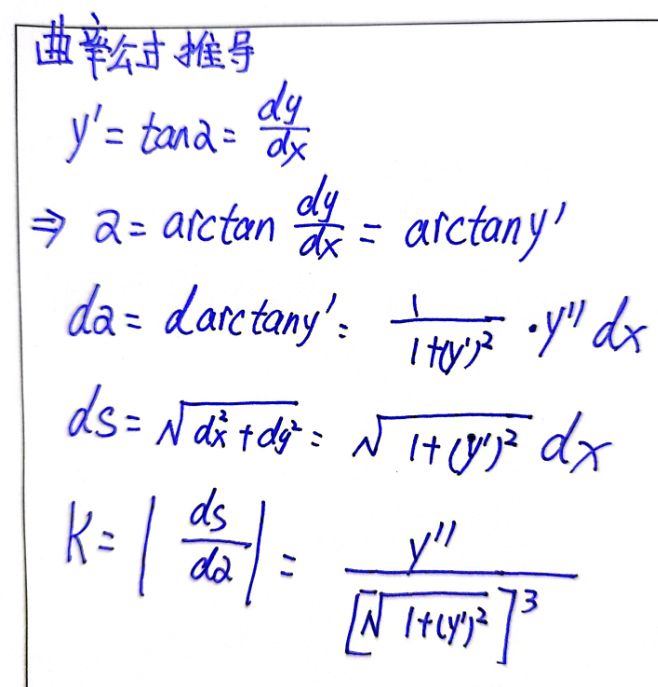 曲率公式推导
y' = tanα = dy/dx
⇒ α = arctan dy/dx = arctany'
dα = darctany' = 1/(1+(y')²) · y'' dx
ds = √(dx²+dy²) = √(1+(y')²) dx
K = | ds/dα | = y''/[√(1+(y')²)]³